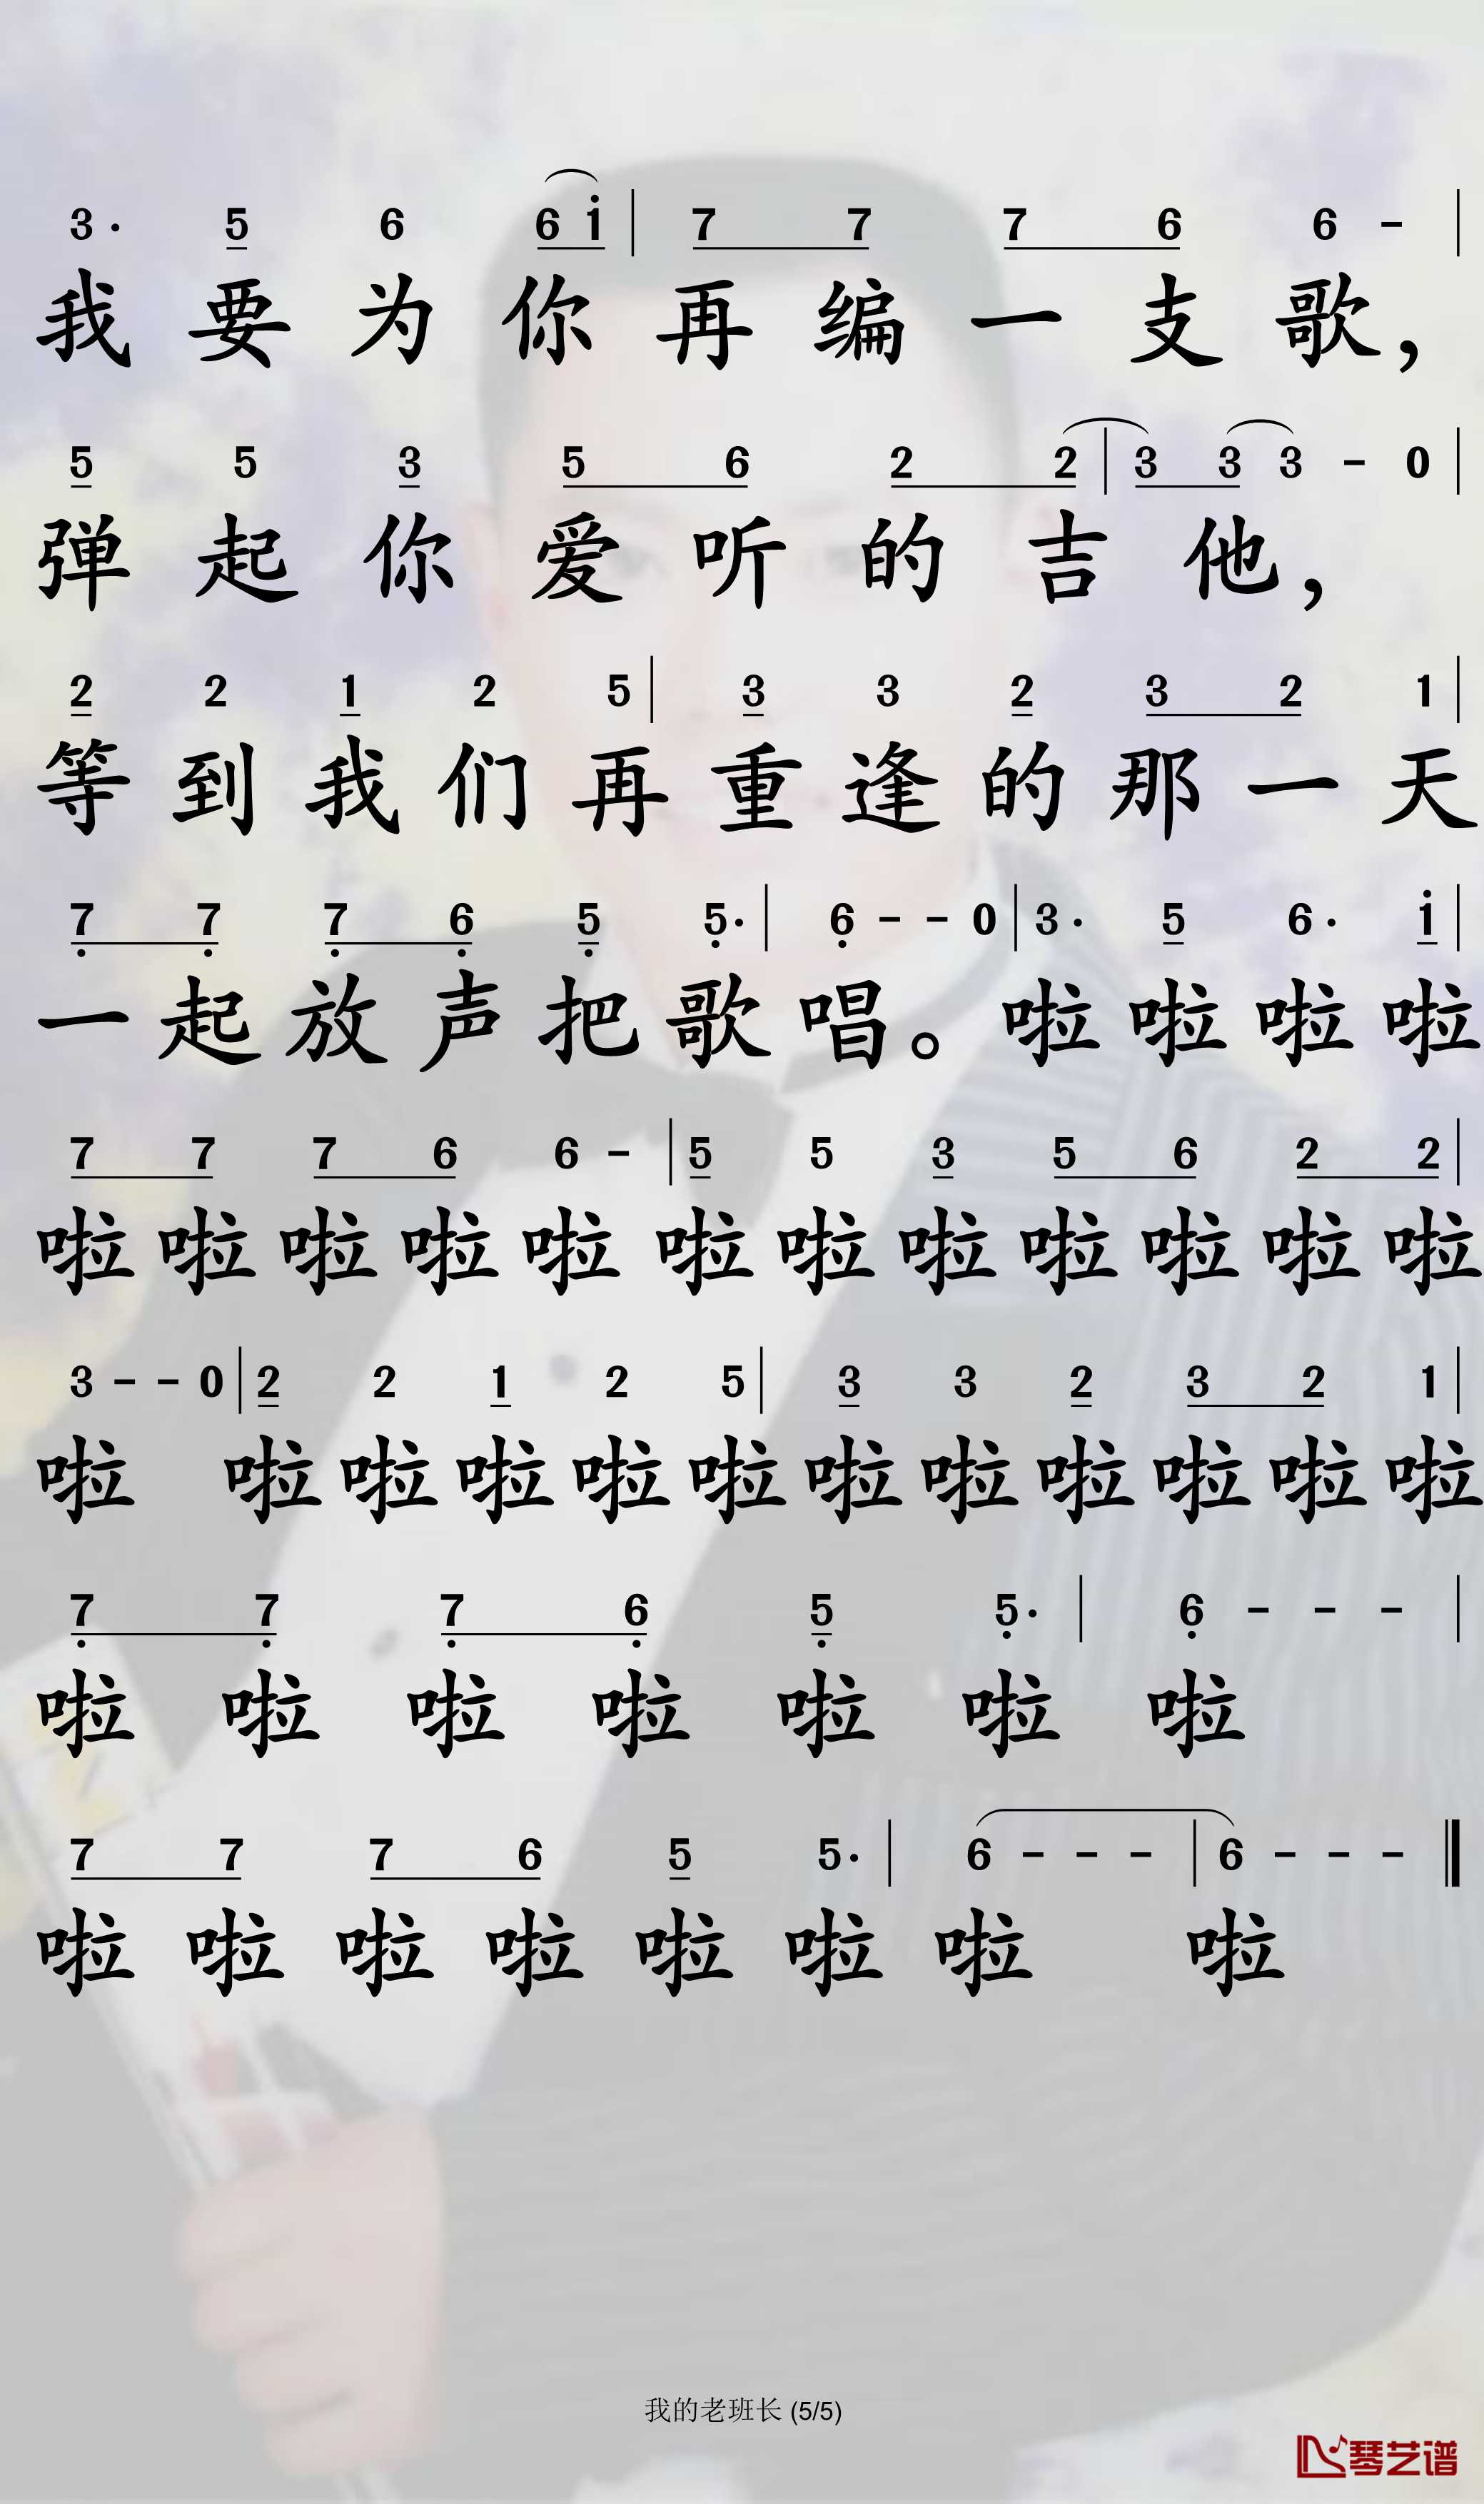 3· 5 6 6 i | 7 7 7 6 6 - |
我要为你再编一支歌，
5 5 3 5 6 2 2 | 3 3 3 - 0 |
弹起你爱听的吉他，
2 2 1 2 5 | 3 3 2 3 2 1 |
等到我们再重逢的那一天
7 7 7 6 5 5· | 6 - - 0 | 3· 5 6· i |
一起放声把歌唱。啦啦啦啦
7 7 7 6 6 - | 5 5 3 5 6 2 2 |
啦啦啦啦啦啦啦啦啦啦啦啦
3 - - 0 | 2 2 1 2 5 | 3 3 2 3 2 1 |
啦 啦啦啦啦啦啦啦啦啦啦啦
7 7 7 6 5 5· | 6 - - - |
啦啦啦啦啦啦啦
7 7 7 6 5 5· | 6 - - - | 6 - - - ‖
啦啦啦啦啦啦啦 啦
我的老班长 (5/5)
琴艺谱